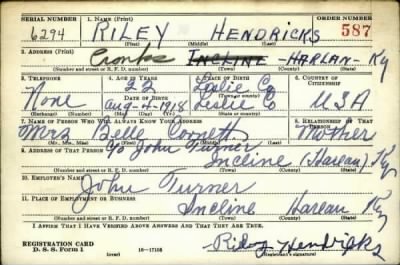 SERIAL NUMBER 1. NAME (Print) ORDER NUMBER
6294 RILEY HENDRICKS 587
(First) (Middle) (Last)
2. ADDRESS (Print)
Cronks INCLINE - HARLAN - Ky
(Number and street or R. F. D. number) (Town) (County) (State)
3. TELEPHONE 4. AGE IN YEARS 5. PLACE OF BIRTH 6. COUNTRY OF CITIZENSHIP
22 Leslie Co
None DATE OF BIRTH Leslie Co USA
Aug-4-1918
(Exchange) (Number) (Mo.) (Day) (Yr.) (State or country)
7. NAME OF PERSON WHO WILL ALWAYS KNOW YOUR ADDRESS 8. RELATIONSHIP OF THAT PERSON
Mrs Belle Cornett Mother
(Mr., Mrs., Miss) (First) (Middle) (Last)
9. ADDRESS OF THAT PERSON
C/o John Turner Incline (Harlan) Ky
(Number and street or R. F. D. number) (Town) (County) (State)
10. EMPLOYER'S NAME
John Turner
11. PLACE OF EMPLOYMENT OR BUSINESS
Incline Harlan Ky
(Number and street or R. F. D. number) (Town) (County) (State)
I AFFIRM THAT I HAVE VERIFIED ABOVE ANSWERS AND THAT THEY ARE TRUE.
REGISTRATION CARD
D. S. S. Form 1 16-17105 Riley Hendricks
(over) (Registrant's signature)